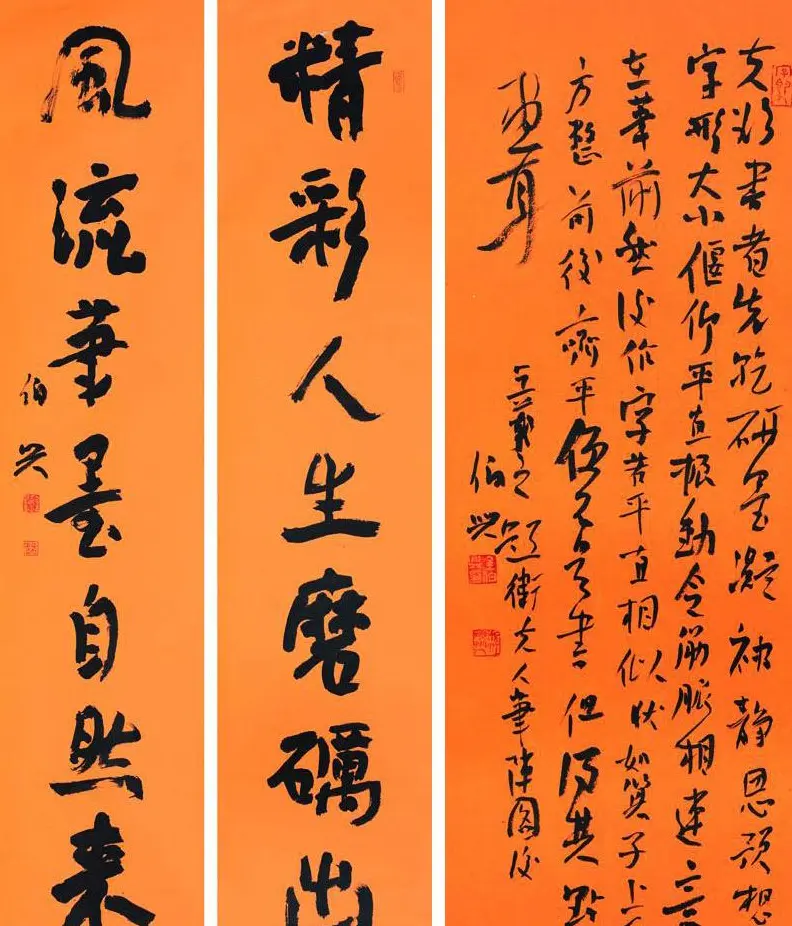 夫欲書者先乾研墨凝神靜思預想
字形大小偃仰平直振動令筋脈相連意
在筆前然後作字若平直相似狀如算子上
方整前後齊平便不是書但得其點
畫耳
王羲之題衛夫人筆陣圖後
伯興
精彩人生磨礪出
風流筆墨自然来
伯興